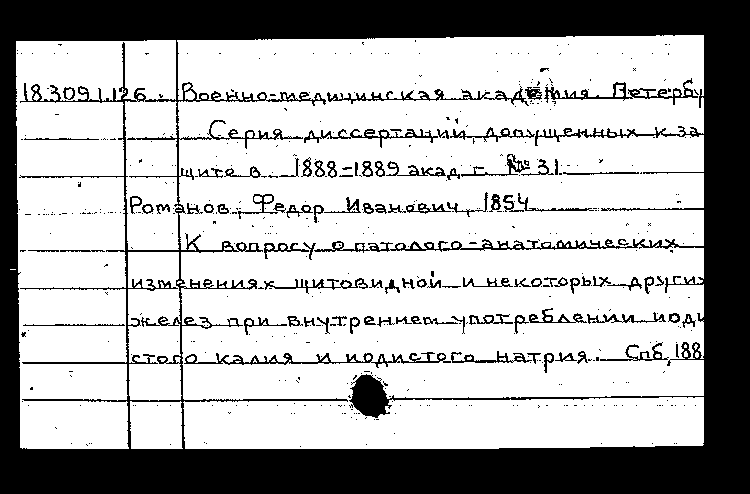 18.309.1.126. Военно-медицинская академия. Петербу
Серия диссертаций, допущенных к за
щите в 1888-1889 акад. г. № 31.
Романов, Федор Иванович, 1854
К вопросу о патолого-анатомических
изменениях щитовидной и некоторых других
желез при внутреннем употреблении иоди
стого калия и иодистого натрия. Спб, 188